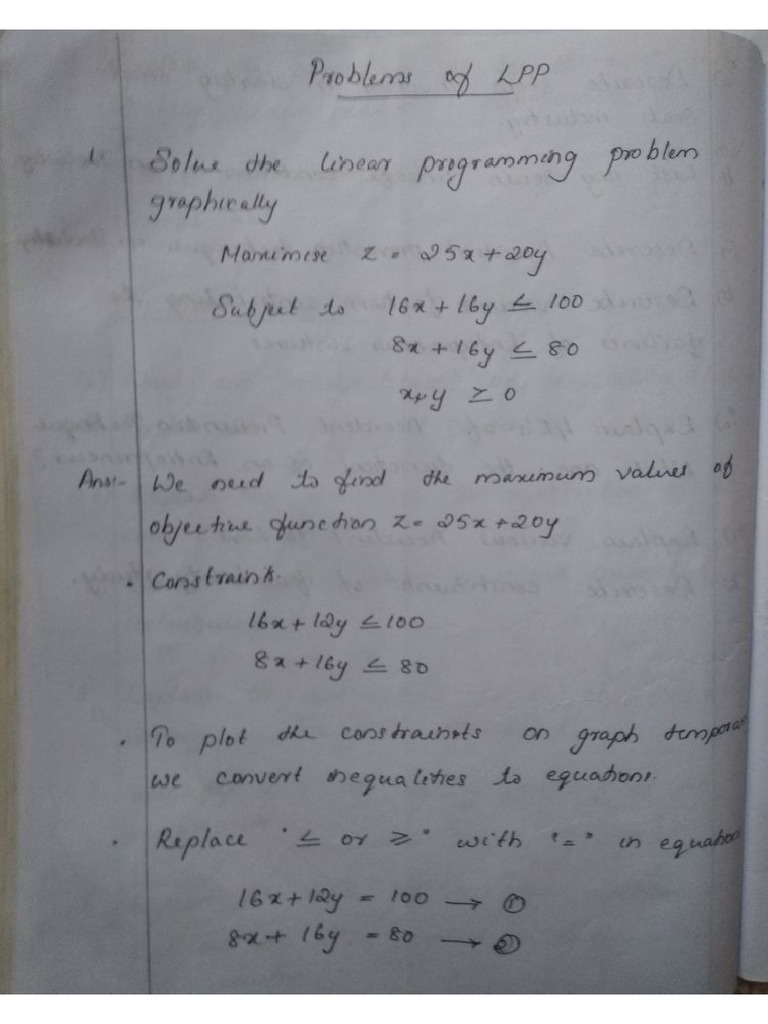 Problems of LPP
1. Solve the linear programming problem
graphically
Maximise Z = 25x + 20y
Subject to 16x + 16y ≤ 100
8x + 16y ≤ 80
x, y ≥ 0
Ans:- We need to find the maximum values of
objective function Z = 25x + 20y
• Constraints.
16x + 12y ≤ 100
8x + 16y ≤ 80
• To plot the constraints on graph tempora
we convert inequalities to equations.
• Replace "≤ or ≥" with "=" in equation
16x + 12y = 100 → ①
8x + 16y = 80 → ②